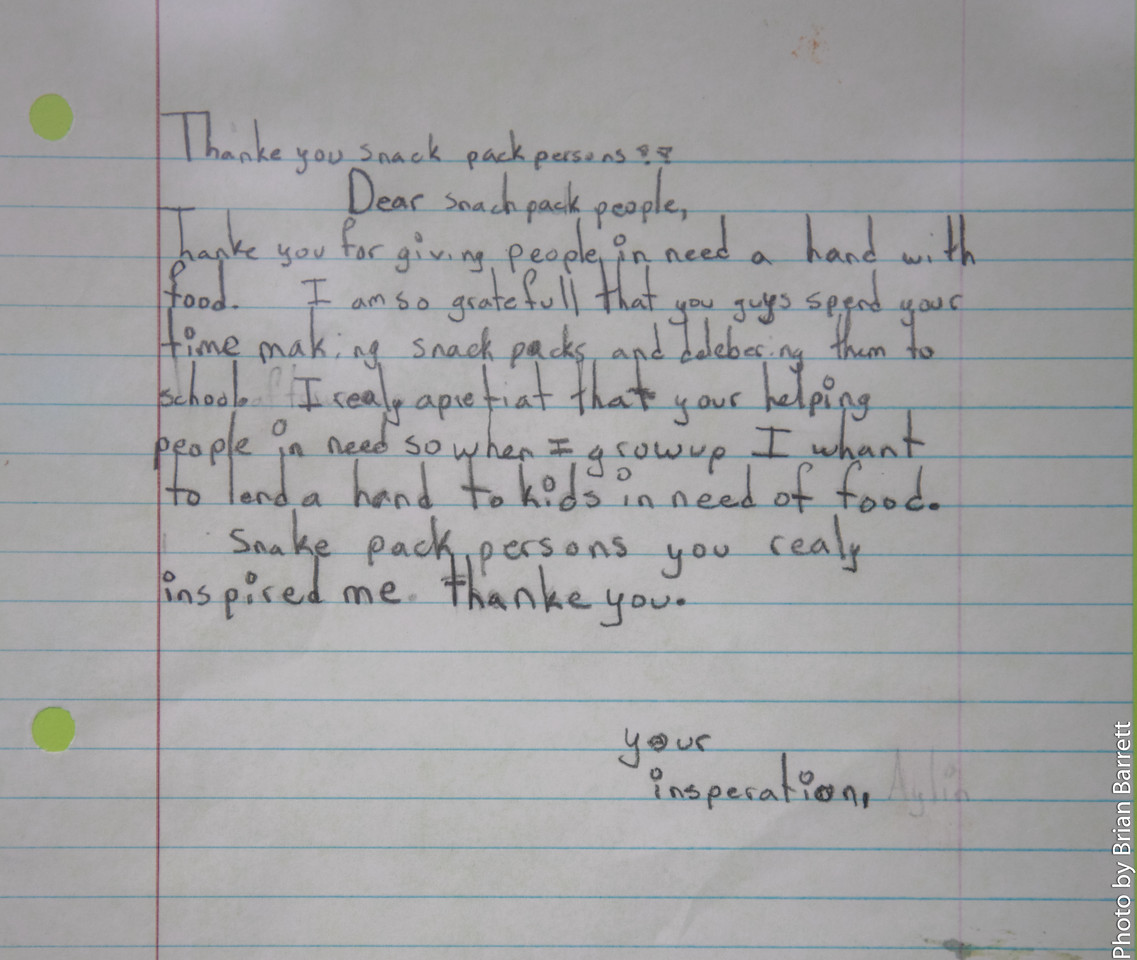 Thanke you snack pack persons !!
Dear snach pack people,
Thanke you for giving people in need a hand with
food. I am so gratefull that you guys spend your
time making snack packs and delebering them to
school. I realy apretiat that your helping
people in need so when I grow up I whant
to lend a hand to kids in need of food.
Snake pack persons you realy
inspired me. thanke you.
your
insperation, Aylin
Photo by Brian Barrett